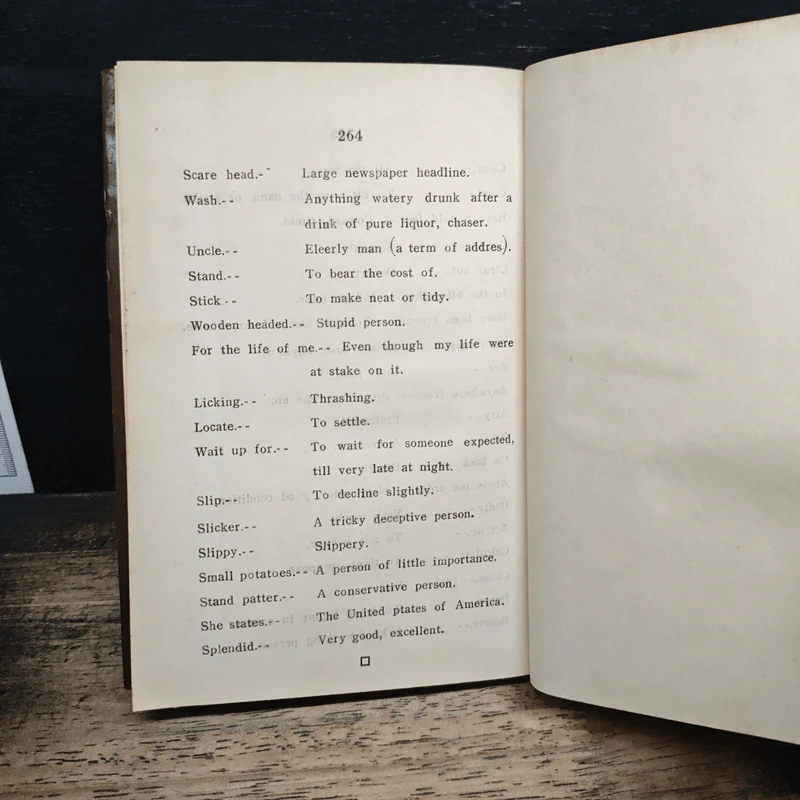 264
Scare head.-- Large newspaper headline.
Wash.-- Anything watery drunk after a
drink of pure liquor, chaser.
Uncle.-- Eleerly man (a term of addres).
Stand.-- To bear the cost of.
Stick -- To make neat or tidy.
Wooden headed.-- Stupid person.
For the life of me.-- Even though my life were
at stake on it.
Licking.-- Thrashing.
Locate.-- To settle.
Wait up for.-- To wait for someone expected,
till very late at night.
Slip.-- To decline slightly.
Slicker.-- A tricky deceptive person.
Slippy.-- Slippery.
Small potatoes.-- A person of little importance.
Stand patter.-- A conservative person.
She states.-- The United ptates of America.
Splendid.-- Very good, excellent.